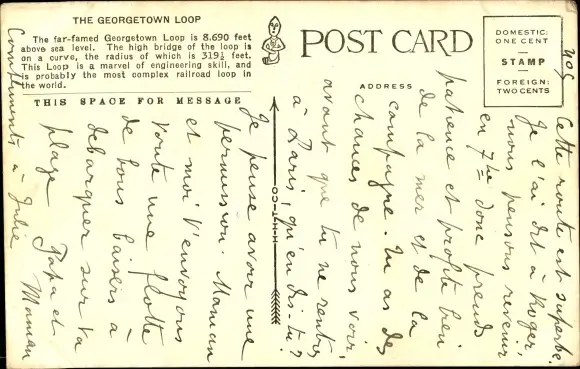 THE GEORGETOWN LOOP
The far-famed Georgetown Loop is 8.690 feet
above sea level. The high bridge of the loop is
on a curve, the radius of which is 319½ feet.
This Loop is a marvel of engineering skill, and
is probably the most complex railroad loop in
the world.
THIS SPACE FOR MESSAGE
POST CARD
ADDRESS
DOMESTIC:
ONE CENT
STAMP
FOREIGN:
TWO CENTS
H-H-T-CO
Cette route est superbe.
Je l'ai dit à Roger,
nous pensons revenir
en 7bre donc prends
patience et profite bien
de la mer et de la
campagne. Tu as des
chances de nous voir,
avant que tu ne rentres
à Paris, qu'en dis-tu?
Je pense avoir une
permission. Maman
et moi t'envoyons
toute une flotte
de bons baisers à
débarquer sur ta
plage Papa et
Maman
Compliments à Julie